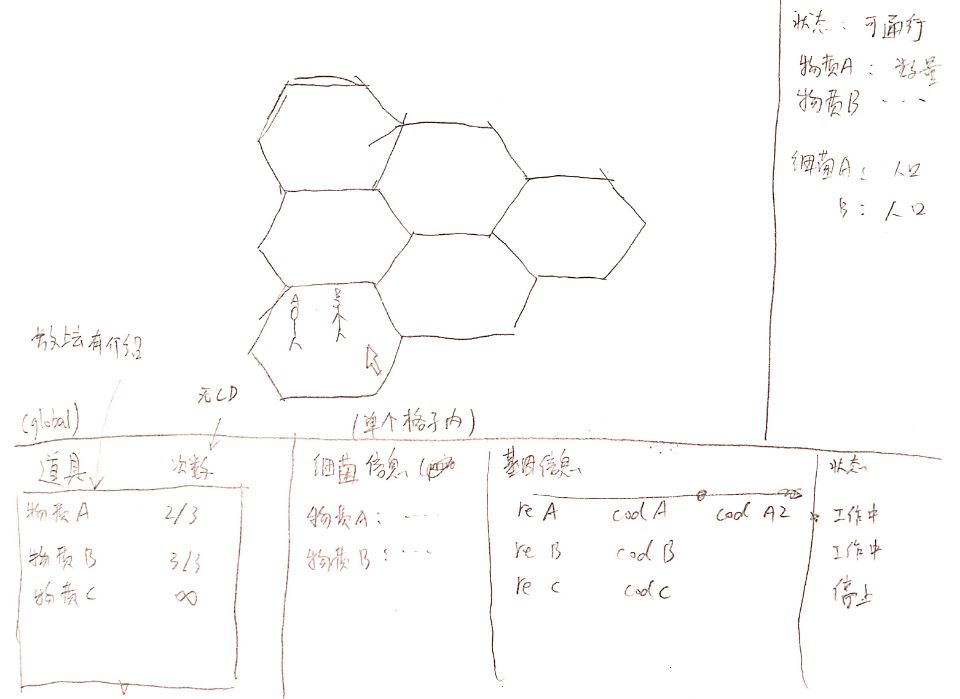 状态：可通行
物质A：数量
物质B ····
细菌A：人口
B：人口
A
B
放上去有介绍
无CD
(global)
(单个格子内)
道具 次数
物质A 2/3
物质B 3/3
物质C ∞
细菌信息
物质A：····
物质B：···
基因信息
re A cod A cod A2
re B cod B
re C cod C
状态
工作中
工作中
停止